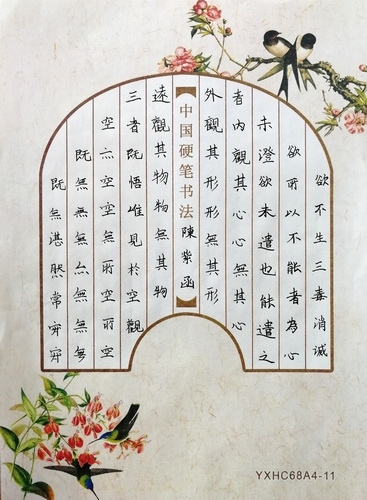 欲不生三毒消滅
欲所以不能者為心
未澄欲未遣也能遣之
者內觀其心心無其心
外觀其形形無其形
中国硬笔书法
陳紫函
遠觀其物物無其物
三者既悟惟見於空觀
空亦空空無所空所空
既無無無亦無無無
既無湛然常寂寂
YXHC68A4-11